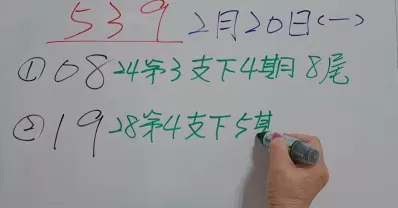 539 2月20日(一)
①08 24第3支下4期月8尾
②19 28第4支下5其